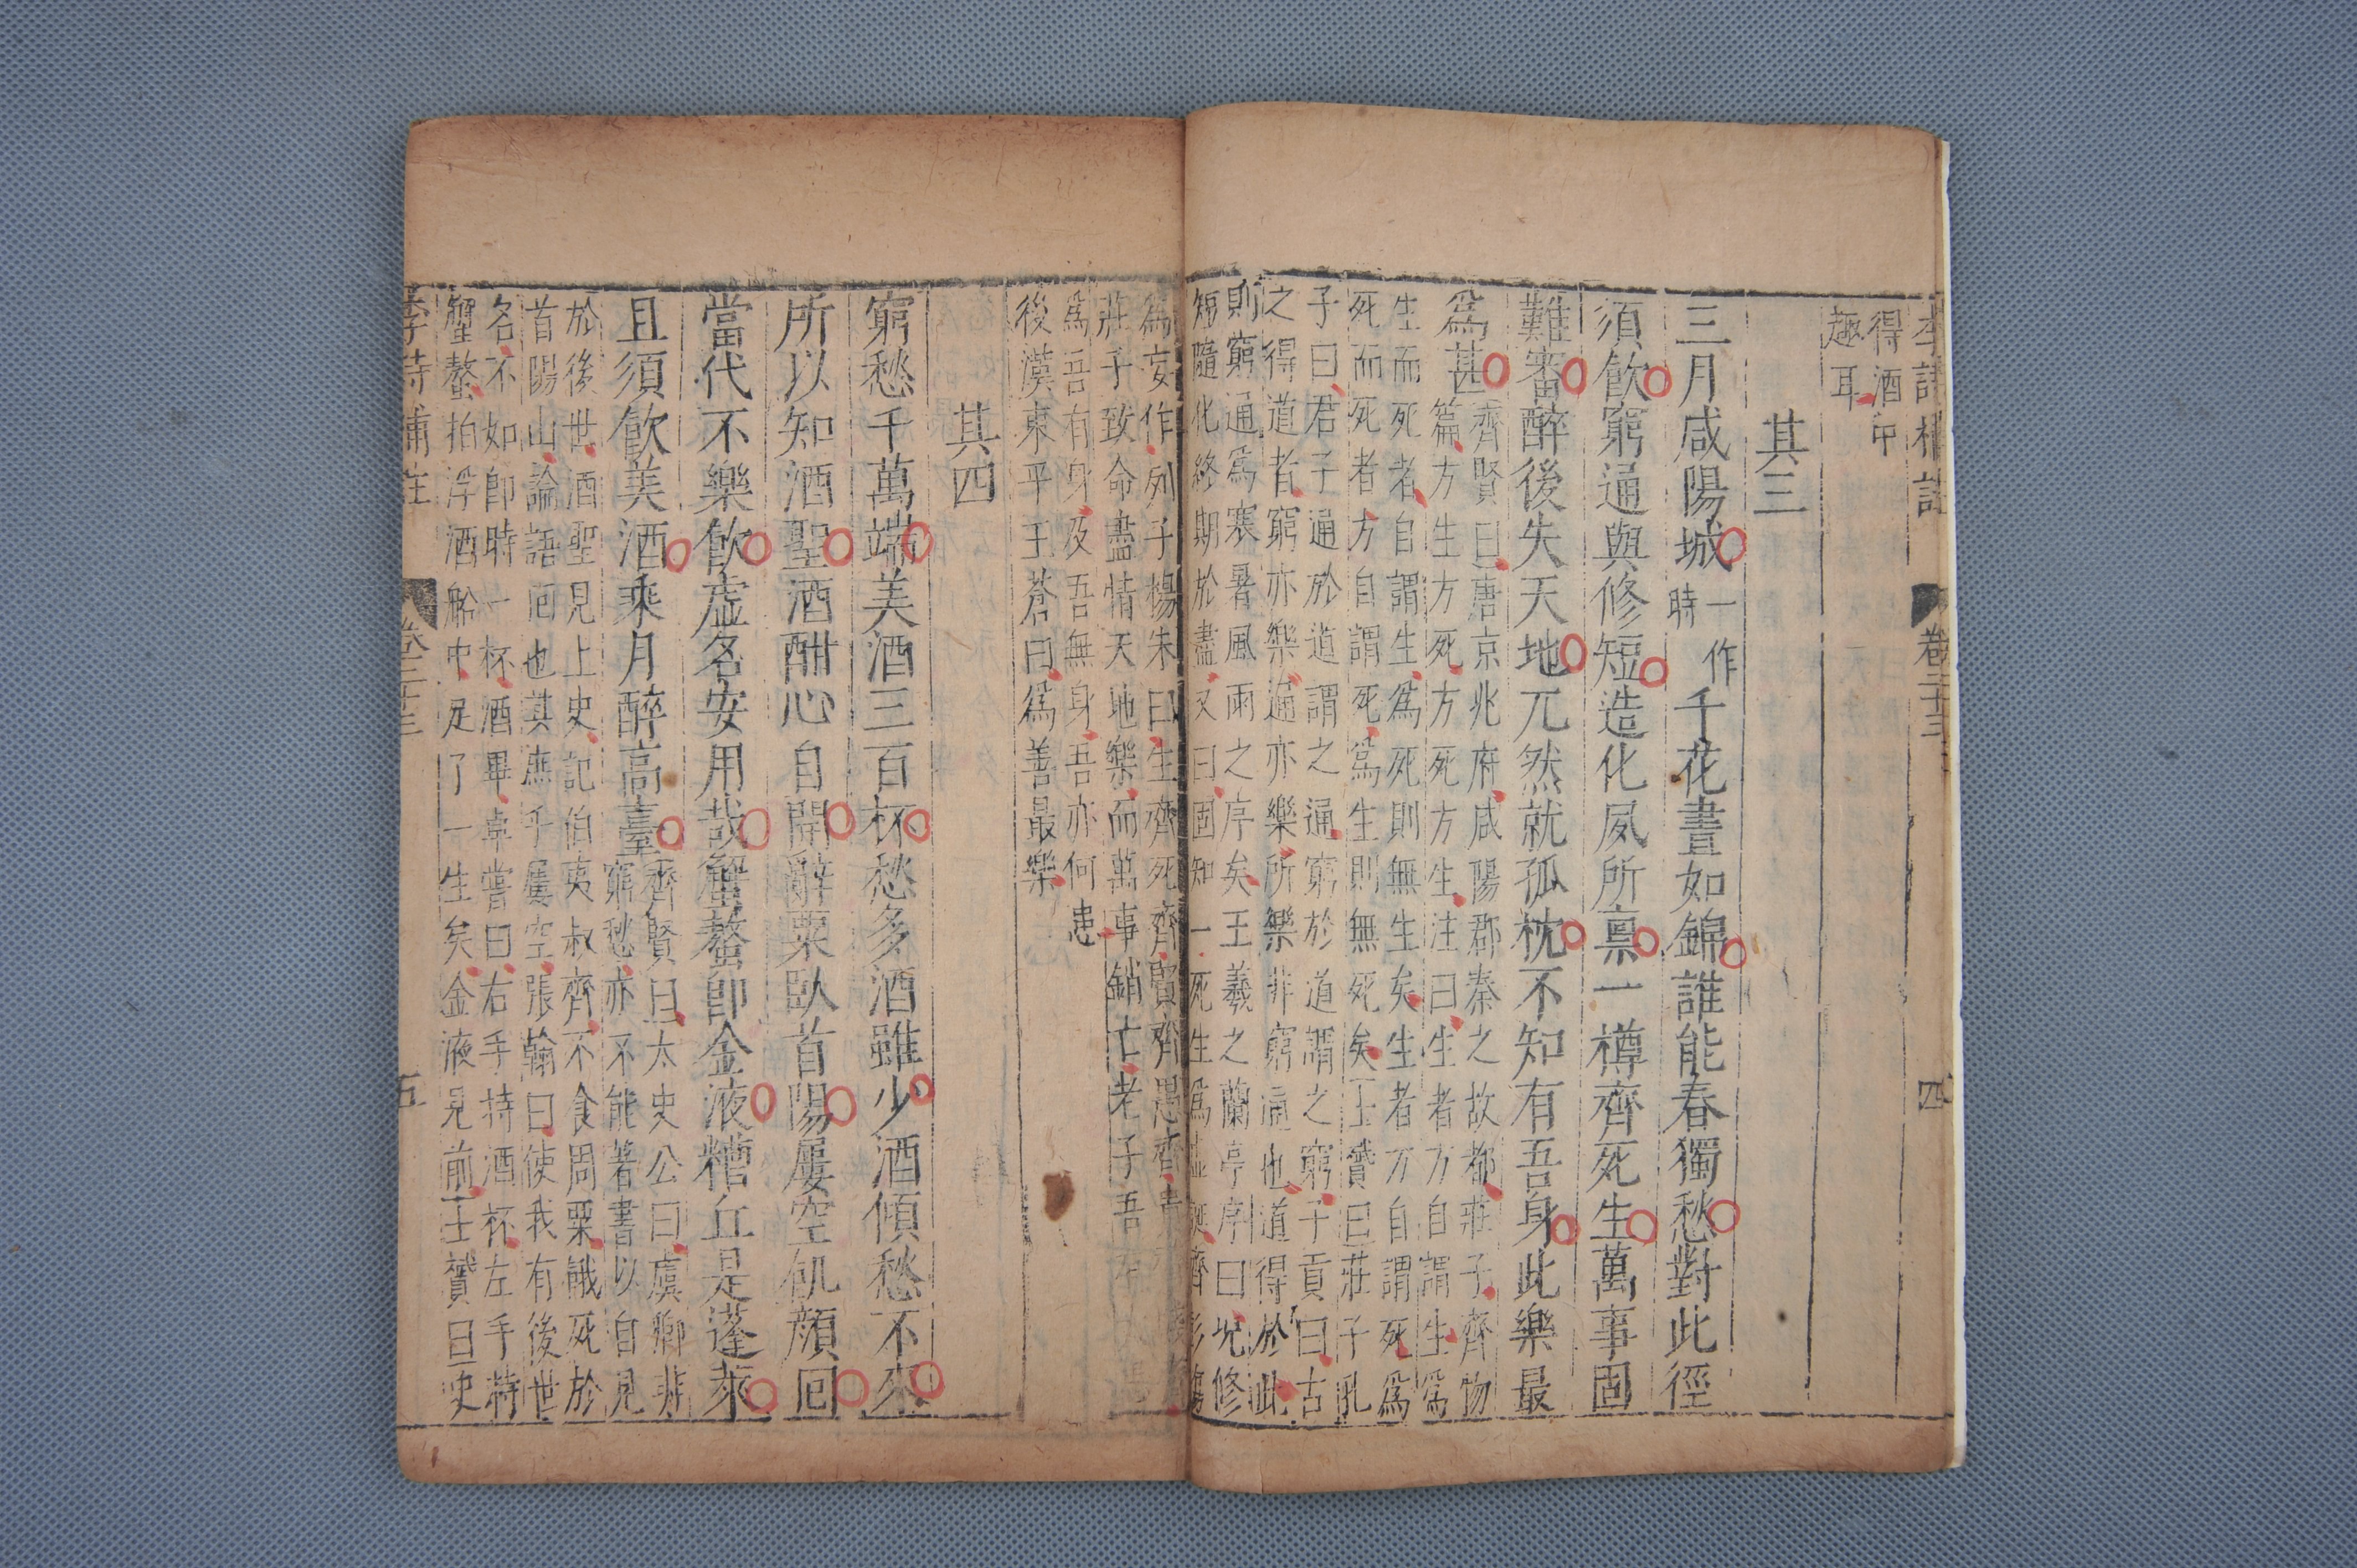 卷二十三
四
得酒中
趣耳
其三
三月咸陽城一作時千花晝如錦誰能春獨愁對此徑
須飲窮通與修短造化夙所禀一樽齊死生萬事固
難審醉後失天地兀然就孤枕不知有吾身此樂最
爲甚
齊賢曰唐京兆府咸陽郡秦之故都莊子齊物
篇方生方死方死方生注曰生者方自謂生爲
生而死者自謂生爲死則無生矣生者方自謂死爲
死而死者方自謂死爲生則無死矣王贇曰莊子孔
子曰君子通於道謂之通窮於道謂之窮子貢曰古
之得道者窮亦樂通亦樂所樂非窮通也道得於此
則窮通爲寒暑風雨之序矣王羲之蘭亭序曰况修
短隨化終期於盡又曰固知一死生爲虛誕齊彭殤
爲妄作列子楊朱曰生齊死齊賢齊愚齊貴
莊子致命盡情天地樂而萬事銷亡老子吾
爲吾有身及吾無身吾亦何患
後漢東平王蒼曰爲善最樂
其四
窮愁千萬端美酒三百杯愁多酒雖少酒傾愁不來
所以知酒聖酒酣心自開辭粟臥首陽屢空飢顔回
當代不樂飲虛名安用哉蟹螯卽金液糟丘是蓬萊
且須飲美酒乘月醉高臺
齊賢曰太史公曰虞卿非
窮愁亦不能著書以自見
於後世酒聖見上史記伯夷叔齊不食周粟餓死於
首陽山論語回也其庶乎屢空張翰曰使我有後世
名不如卽時一杯酒畢卓嘗曰右手持酒杯左手持
蟹螯拍浮酒船中足了一生矣金液見前王贇曰史
李詩補註
卷二十三
五